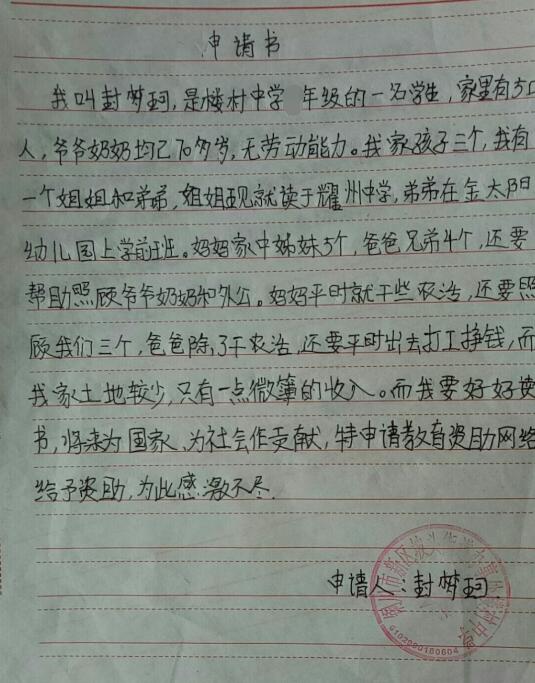 申请书
我叫封梦珂,是楼村中学 年级的一名学生,家里有5口
人,爷爷奶奶均已70多岁,无劳动能力。我家孩子三个,我有
一个姐姐和弟弟,姐姐现就读于耀州中学,弟弟在金太阳
幼儿园上学前班。妈妈家中姊妹5个,爸爸兄弟4个,还要
帮助照顾爷爷奶奶和外公。妈妈平时就干些农活,还要照
顾我们三个,爸爸除了干农活,还要平时出去打工挣钱,而
我家土地较少,只有一点微簿的收入。而我要好好读
书,将来为国家、为社会作贡献,特申请教育资助网络
给予资助,为此感激不尽.
申请人:封梦珂
6102090180604